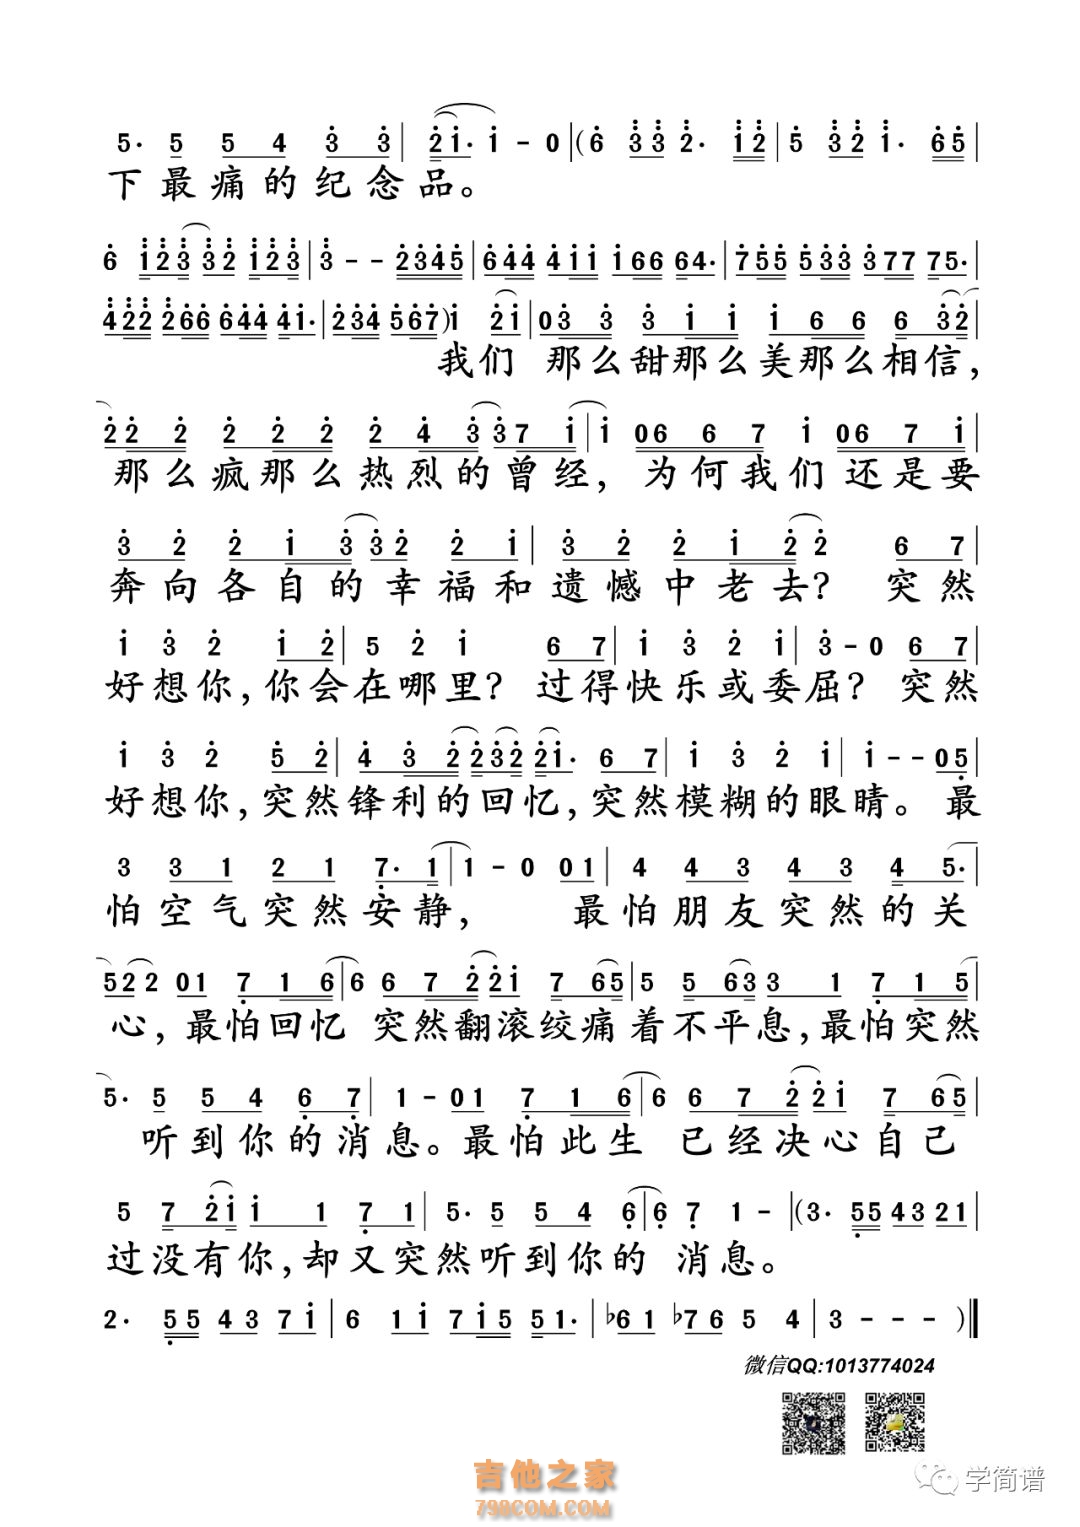 5· 5 5 4 3 3 | 2 1· 1 - 0 |(6 3 3 2· 1 2 | 5 3 2 1· 6 5 |
下最痛的纪念品。
6 1 2 3 3 2 1 2 3 | 3 - - 2 3 4 5 | 6 4 4 4 1 1 1 6 6 6 4· | 7 5 5 5 3 3 3 7 7 7 5· |
4 2 2 2 6 6 6 4 4 4 1· | 2 3 4 5 6 7 ) i 2 i | 0 3 3 3 i i i 6 6 6 3 2 |
我们 那么甜那么美那么相信,
2 2 2 2 2 2 2 4 3 3 7 i | i 0 6 6 7 i 0 6 7 i |
那么疯那么热烈的曾经, 为何我们还是要
3 2 2 i 3 3 2 2 i | 3 2 2 i 2 2 6 7 |
奔向各自的幸福和遗憾中老去? 突然
i 3 2 i 2 | 5 2 i 6 7 | i 3 2 i | 3 - 0 6 7 |
好想你,你会在哪里? 过得快乐或委屈? 突然
i 3 2 5 2 | 4 3 2 2 3 2 2 i· 6 7 | i 3 2 i | i - - 0 5 |
好想你,突然锋利的回忆,突然模糊的眼睛。最
3 3 1 2 1 7· 1 | 1 - 0 0 1 | 4 4 3 4 3 4 5· |
怕空气突然安静, 最怕朋友突然的关
5 2 2 0 1 7 1 6 | 6 6 7 2 2 i 7 6 5 | 5 5 6 3 3 1 7 1 5 |
心, 最怕回忆 突然翻滚绞痛着不平息,最怕突然
5· 5 5 4 6 7 | 1 - 0 1 7 1 6 | 6 6 7 2 2 i 7 6 5 |
听到你的消息。最怕此生 已经决心自己
5 7 2 i i 1 7 1 | 5· 5 5 4 6 | 6 7 1 - |(3· 5 5 4 3 2 1 |
过没有你,却又突然听到你的 消息。
2· 5 5 4 3 7 i | 6 1 i 7 i 5 5 1· | ♭6 1 ♭7 6 5 4 | 3 - - - )‖
微信QQ:1013774024
学简谱
吉他之家
798COM.COM